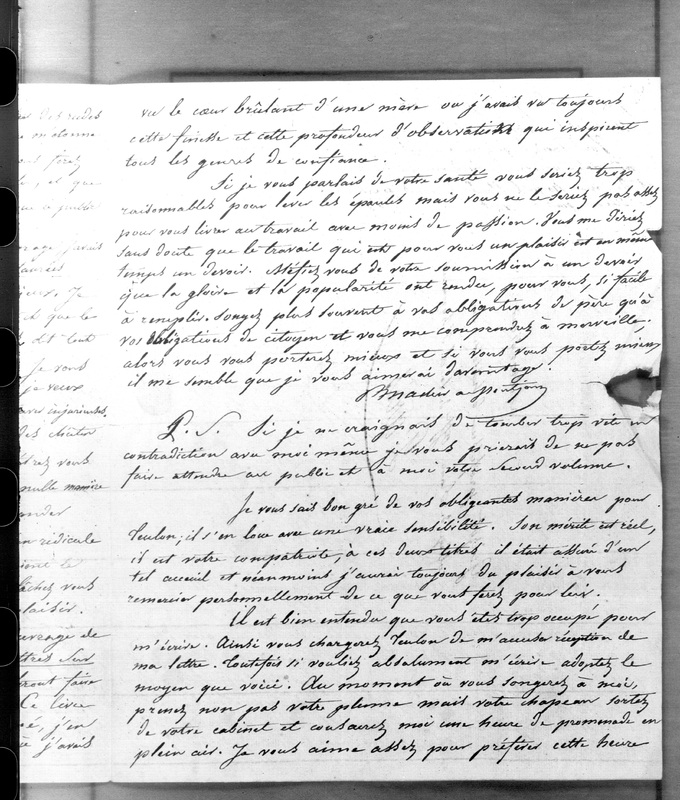 er des rudes
me donne
ferez
, et que
j'avais
Je
et que le
dit tout
je vous
je veux
injurieuses,
des
tirez vous
nulle manière
ridicule
le
vous
plaisir.
ouvrage de
lettres sur
faire
Ce livre
, j'en
j'avais
vu le cœur brûlant d'une mère ou j'avais vu toujours
cette finesse et cette profondeur d'observation qui inspirent
tous les genres de confiance.
Si je vous parlais de votre santé vous seriez trop
raisonnables pour lever les épaules mais vous ne le seriez pas assez
pour vous livrer au travail avec moins de passion. Vous me diriez
sans doute que le travail qui est pour vous un plaisir est en même
temps un devoir. Méfiez vous de votre soumission à un devoir
que la gloire et la popularité ont rendu, pour vous, si facile
à remplir. Songez plus souvent à vos obligations de père qu'à
vos obligations de citoyen et vous me comprendrez à merveille;
alors vous vous porterez mieux et si vous vous portez mieux
il me semble que je vous aimerai davantage.
P. S. Si je ne craignais de tomber trop vite en
contradiction avec moi même je vous prierais de ne pas
faire attendre au public et à moi votre second volume.
Je vous sais bon gré de vos obligeantes manières pour
Teulon; il s'en loue avec une vraie sensibilité. Son mérite est réel,
il est votre compatriote, à ces deux titres il était assuré d'un
tel accueil et néanmoins j'aurai toujours du plaisir à vous
remercier personnellement de ce que vous ferez pour lui.
Il est bien entendu que vous êtes trop occupé pour
m'écrire. Ainsi vous chargerez Teulon de m'accuser réception de
ma lettre. Toutefois si vouliez absolument m'écrire adoptez le
moyen que voici. Au moment où vous songerez à moi,
prenez non pas votre plume mais votre chapeau sortez
de votre cabinet et consacrez moi une heure de promenade en
plein air. Je vous aime assez pour préférer cette heure